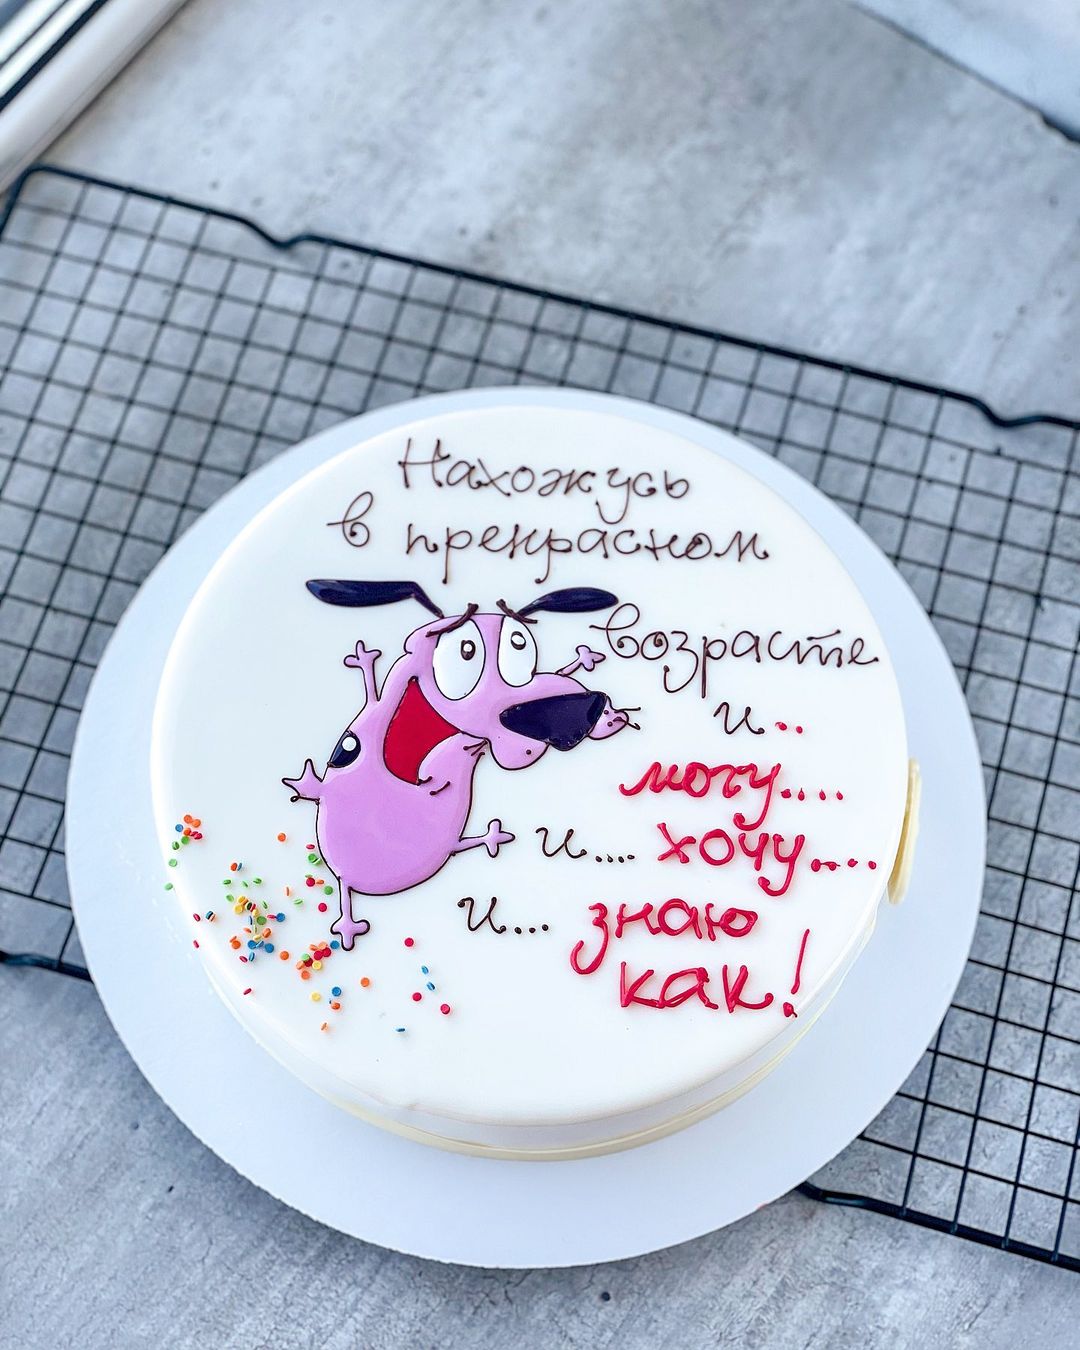 Нахожусь
в прекрасном
возрасте
и..
могу....
и.... хочу....
и... знаю
как!